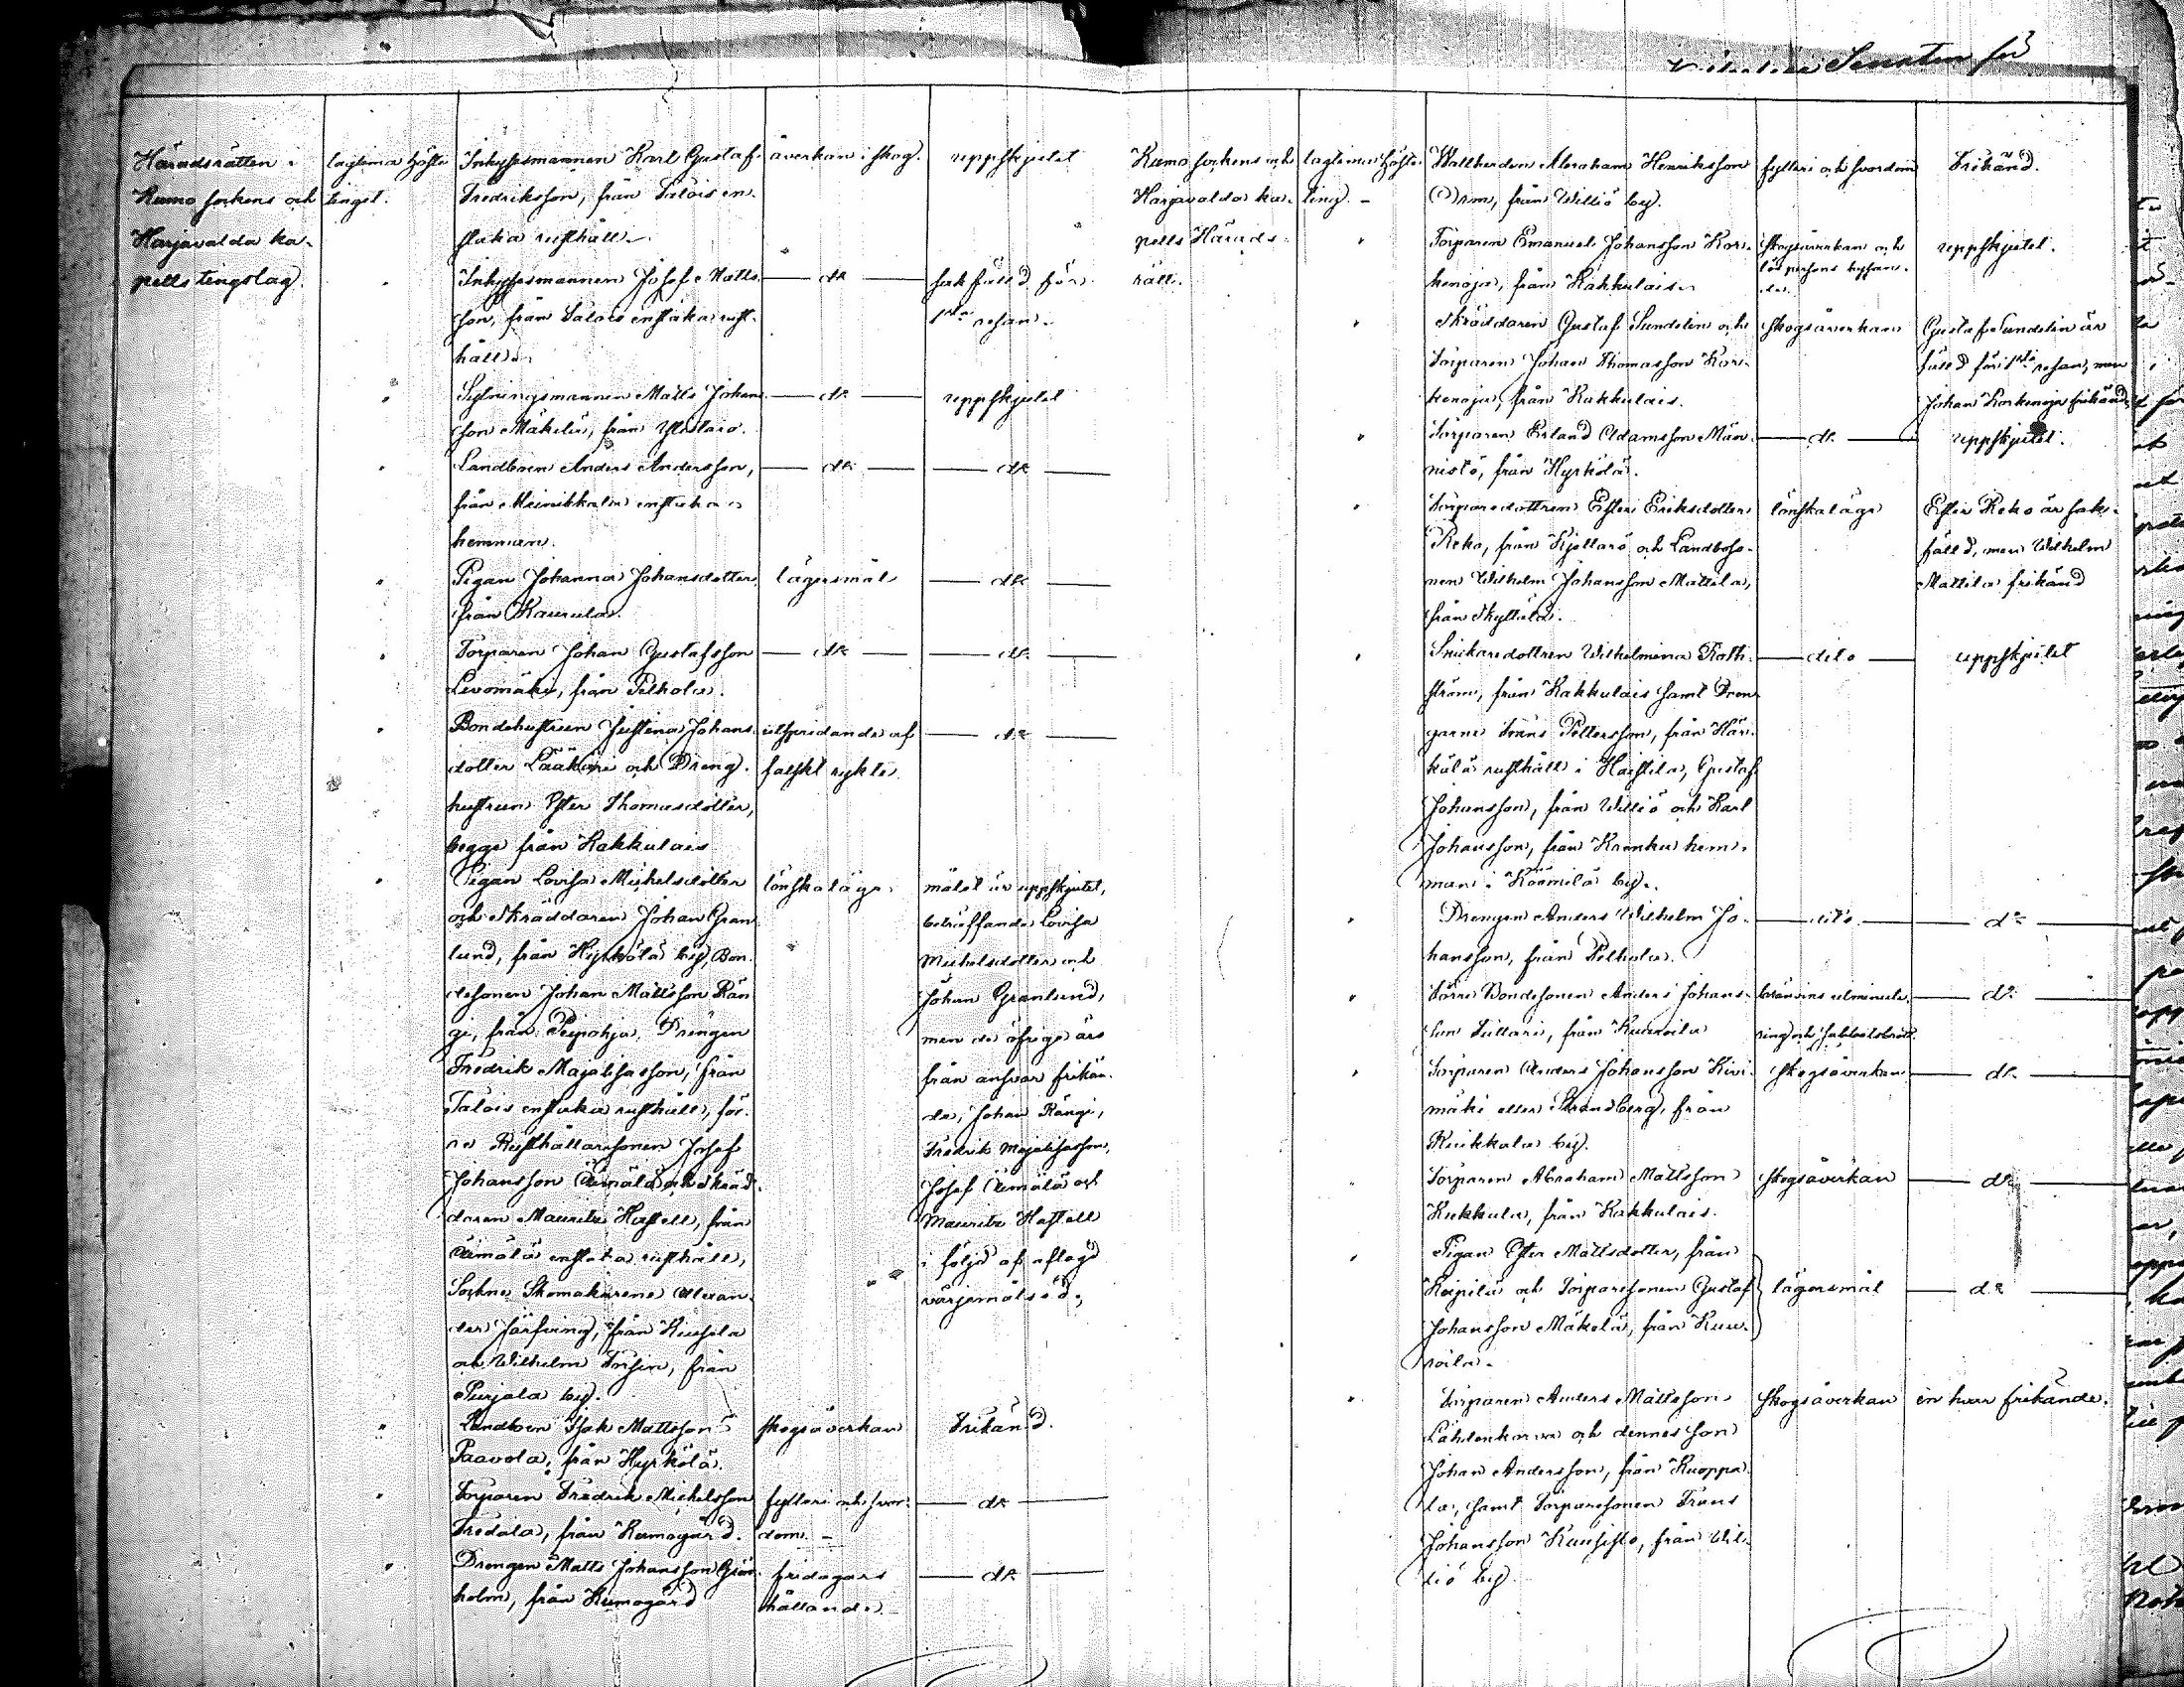 Senaten för
Häradsrätten i
Kumo sockens och
Harjavalda ka-
pells tingslag.
lagtima höste
tinget.
Inhysesmannen Karl Gustaf
Fredriksson, från Talois en-
staka rusthåll.
åverkan i skog.
uppskjutet
Inhysesmannen Josef Matts-
son, från Talois enstaka rust-
håll.
d:o
sakfälld för
1sta resan.
Sytningsmannen Matts Johans-
son Mäkelä, från Ylistaro.
d:o
uppskjutet
Landboen Anders Andersson,
från enstaka
hemman.
d:o
d:o
Pigan Johanna Johansdotter,
från Kaurula.
lägersmål
d:o
Torparen Johan Gustafsson
Levomäki, från Pelhola.
d:o
d:o
Bondehustrun Justina Johans-
dotter Lääkäri och Dreng-
hustrun Ester Thomasdotter,
begge från Kakkulais
utspridande af
falskt rykte.
d:o
Pigan Lovisa Michelsdotter
och Skräddaren Johan Gran-
lund, från Hyrkölä by, Bon-
desonen Johan Mattsson Rän-
gi, från Peipohja, Drängen
Fredrik Majalisasson, från
Talois enstaka rusthåll, för-
re Rusthållaresonen Josef
Johansson Äimälä och Skräd-
daren Mauritz Hastell, från
Äimälä enstaka rusthåll,
Sockne Skomakarene Alexan-
der Järfving, från
och Wilhelm Forsin, från
Purjala by.
lönskaläge
målet är uppskjutet,
beträffande Lovisa
Michelsdotter och
Johan Granlund,
men de öfrige äro
från ansvar frikän-
de, Johan Rängi,
Fredrik Majalisasson,
Josef Äimälä och
Mauritz Hastell
i följd af aflagd
värjemålsed.
Landboen Isak Mattsson
Paavola, från Hyrkölä.
skogsåverkan
Frikänd.
Torparen Fredrik Michelsson
Fredala, från Kumogård.
fylleri och svor-
dom.
d:o
Drengen Matts Johansson Grön-
holm, från Kumogård
fridagars
hållande.
d:o
Kumo sockens och
Harjavalda ka-
pells Härads-
rätt.
lagtima höste
ting.
Wallherden Abraham Henriksson
Orm, från Williö by.
fylleri och svordom
Frikänd.
Torparen Emanuel Johansson Kor-
kenoja, från Kakkulais.
skogsåverkan och
lös persons hysan-
de.
uppskjutet.
Skräddaren Gustaf Sundelin och
Torparen Johan Thomasson Kor-
kenoja, från Kakkulais.
skogsåverkan
Gustaf Sundelin är
fälld för 1sta resan, men
Johan Korkenoja frikänd.
Torparen Erland Adamsson Män-
nistö, från Hyrkölä.
d:o
uppskjutet.
Torparedottren Ester Eriksdotter
Reko, från Kjettarö och Landboso-
nen Wilhelm Johansson Mattila,
från Skyttälä.
lönskaläge
Ester Reko är sak-
fälld, men Wilhelm
Mattila frikänd
Snickaredottren Wilhelmina Roth-
ström, från Kakkulais samt Dren-
garne Frans Pettersson, från Här-
kälä rusthåll i Haistila, Gustaf
Johansson, från Williö och Karl
Johansson, från Krenku hem-
man i Köömilä by.
dito
uppskjutet
Drengen Anders Wilhelm Jo-
hansson, från Pelhola.
dito
d:o
Förre Bondesonen Anders Johans-
son Tuttari, från Kuuroila
bränvins utminute-
ring och sabbatsbrott.
d:o
Torparen Anders Johansson Kivi-
mäki eller Strandberg, från
Ruikkala by.
skogsåverkan
d:o
Torparen Abraham Mattsson
Kukkula, från Kakkulais.
skogsåverkan
d:o
Pigan Ester Mattsdotter, från
Keipilä och Torparesonen Gustaf
Johansson Mäkelä, från Kuu-
roila.
lägersmål
d:o
Torparen Anders Mattsson
Lähdenkorva och dennes son
Johan Andersson, från Kuoppa-
la, samt Torparesonen Frans
Johansson Kuusisto, från Wil-
liö by.
skogsåverkan
en hvar frikände.